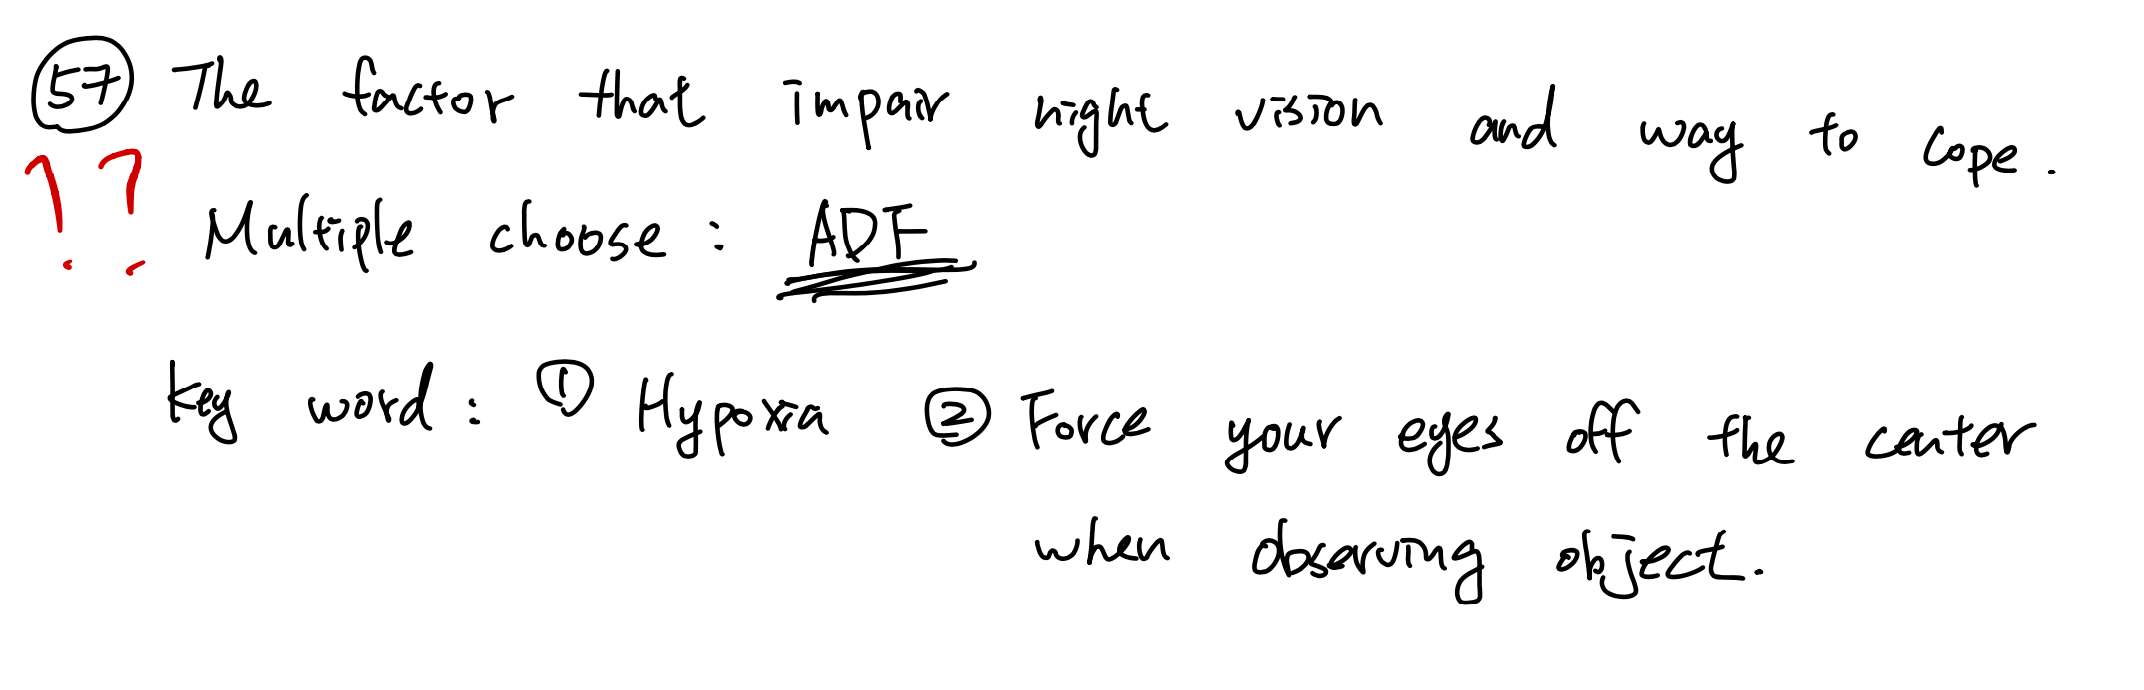 57 The factor that impair night vision and way to cope.
!? Multiple choose: ADF
key word: ① Hypoxia ② Force your eyes off the center
when observing object.